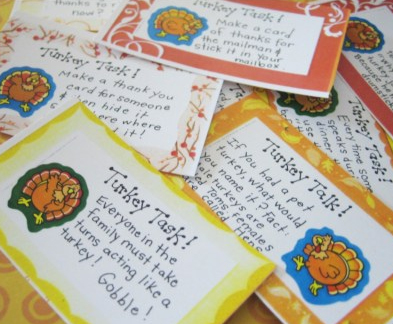 thanks to
now?
Turkey Task!
Make a card
of thanks for
the mailman &
stick it in your
mailbox
Turkey Task!
Make a thank you
card for someone
& hide it
where
it!
Turkey Task!
Everyone in the
family must take
turns acting like a
turkey!
Gobble!
Turkey Talk!
If you had a pet
turkey, what would
you name it? Fact:
male turkeys are
toms
females
hens
Turkey Task!
Every time some
speaks du
dinner